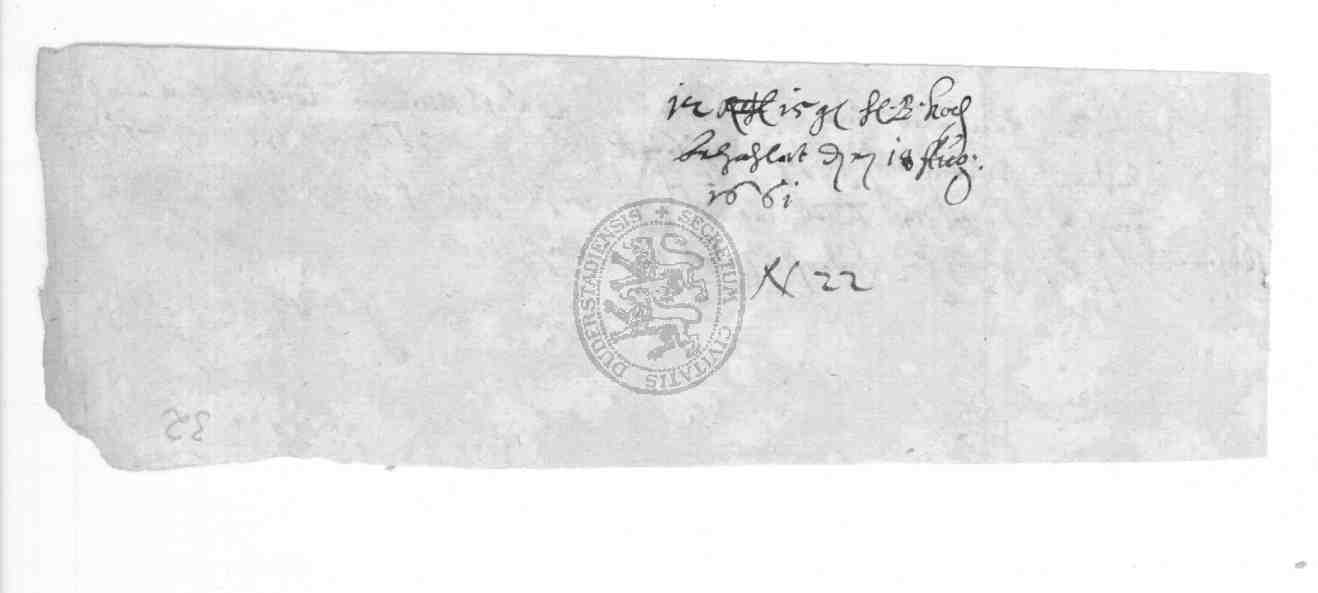 12 Rthl 15 gl H. B. Koch
bezahlet den 18 Aug:
1661
N 22
SECRETUM CIVITATIS DUDERSTADIENSIS
32